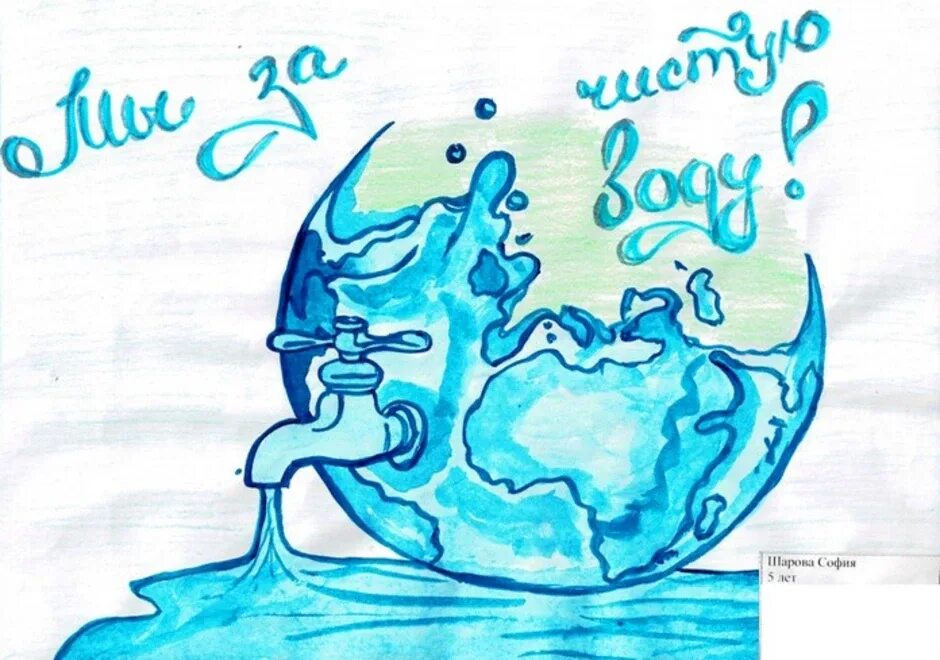 Мы за
чистую
воду!
Шарова София
5 лет